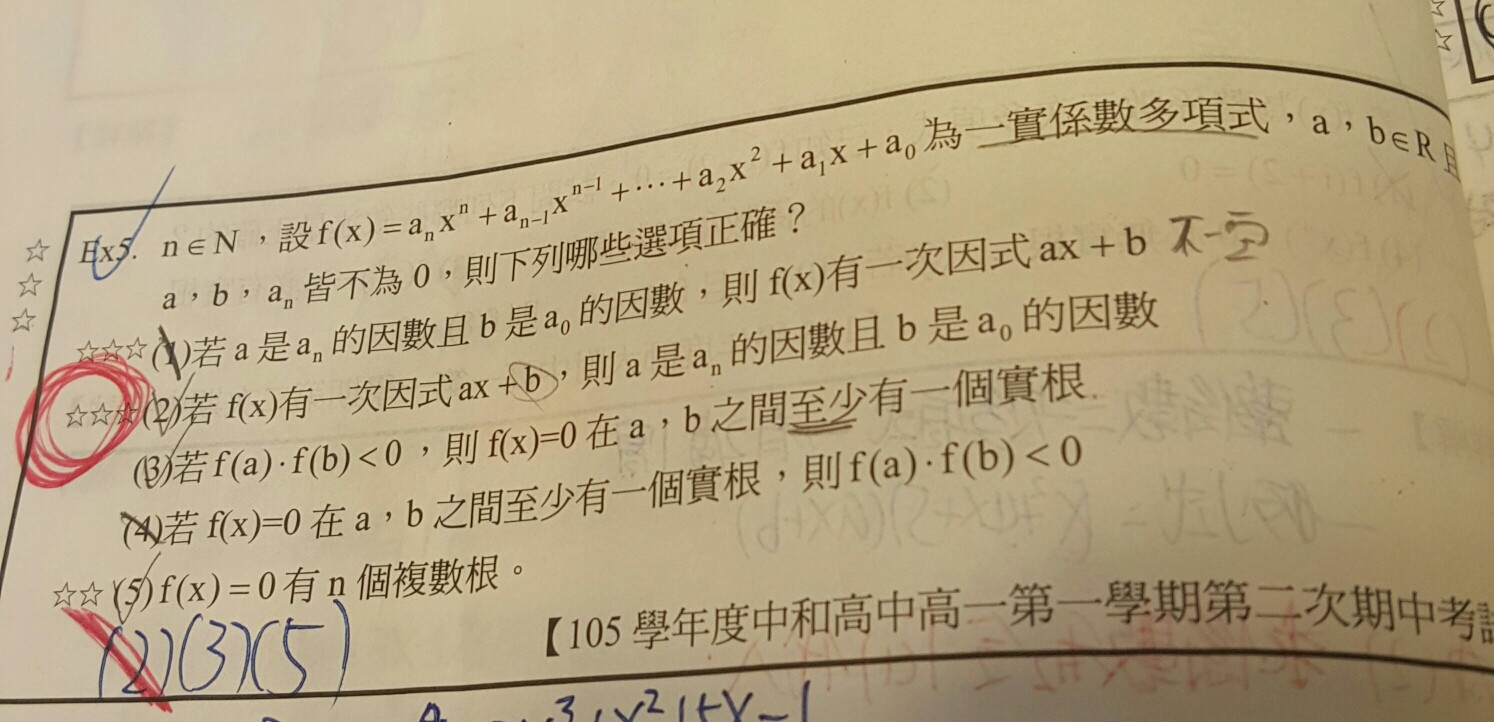 Ex5. n∈N，設f(x)=aₙxⁿ+aₙ₋₁xⁿ⁻¹+⋯+a₂x²+a₁x+a₀為一實係數多項式，a，b∈R且
a，b，aₙ皆不為0，則下列哪些選項正確？
☆☆☆(1)若a是aₙ的因數且b是a₀的因數，則f(x)有一次因式ax+b 不一定
☆☆☆(2)若f(x)有一次因式ax+b，則a是aₙ的因數且b是a₀的因數
(3)若f(a)·f(b)<0，則f(x)=0在a，b之間至少有一個實根.
(4)若f(x)=0在a，b之間至少有一個實根，則f(a)·f(b)<0
☆☆(5)f(x)=0有n個複數根。
(2)(3)(5)
【105學年度中和高中高一第一學期第二次期中考